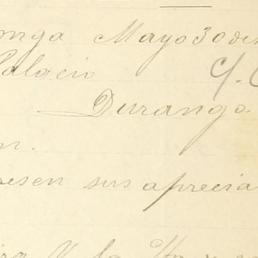 onga Mayo 30 de
Palacio C. G
Durango.
n.
resen sus aprecia
y la